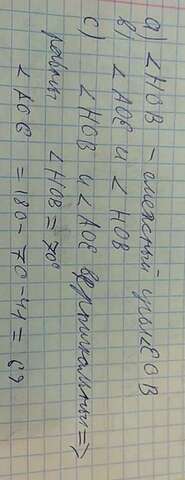 а) ∠HOB - смежный угол ∠EOB
в) ∠AOE и ∠HOB
с) ∠HOB и ∠AOE вертикальный =>
равны ∠HOB = 70°
∠AOC = 180 - 70 - 41 = 69